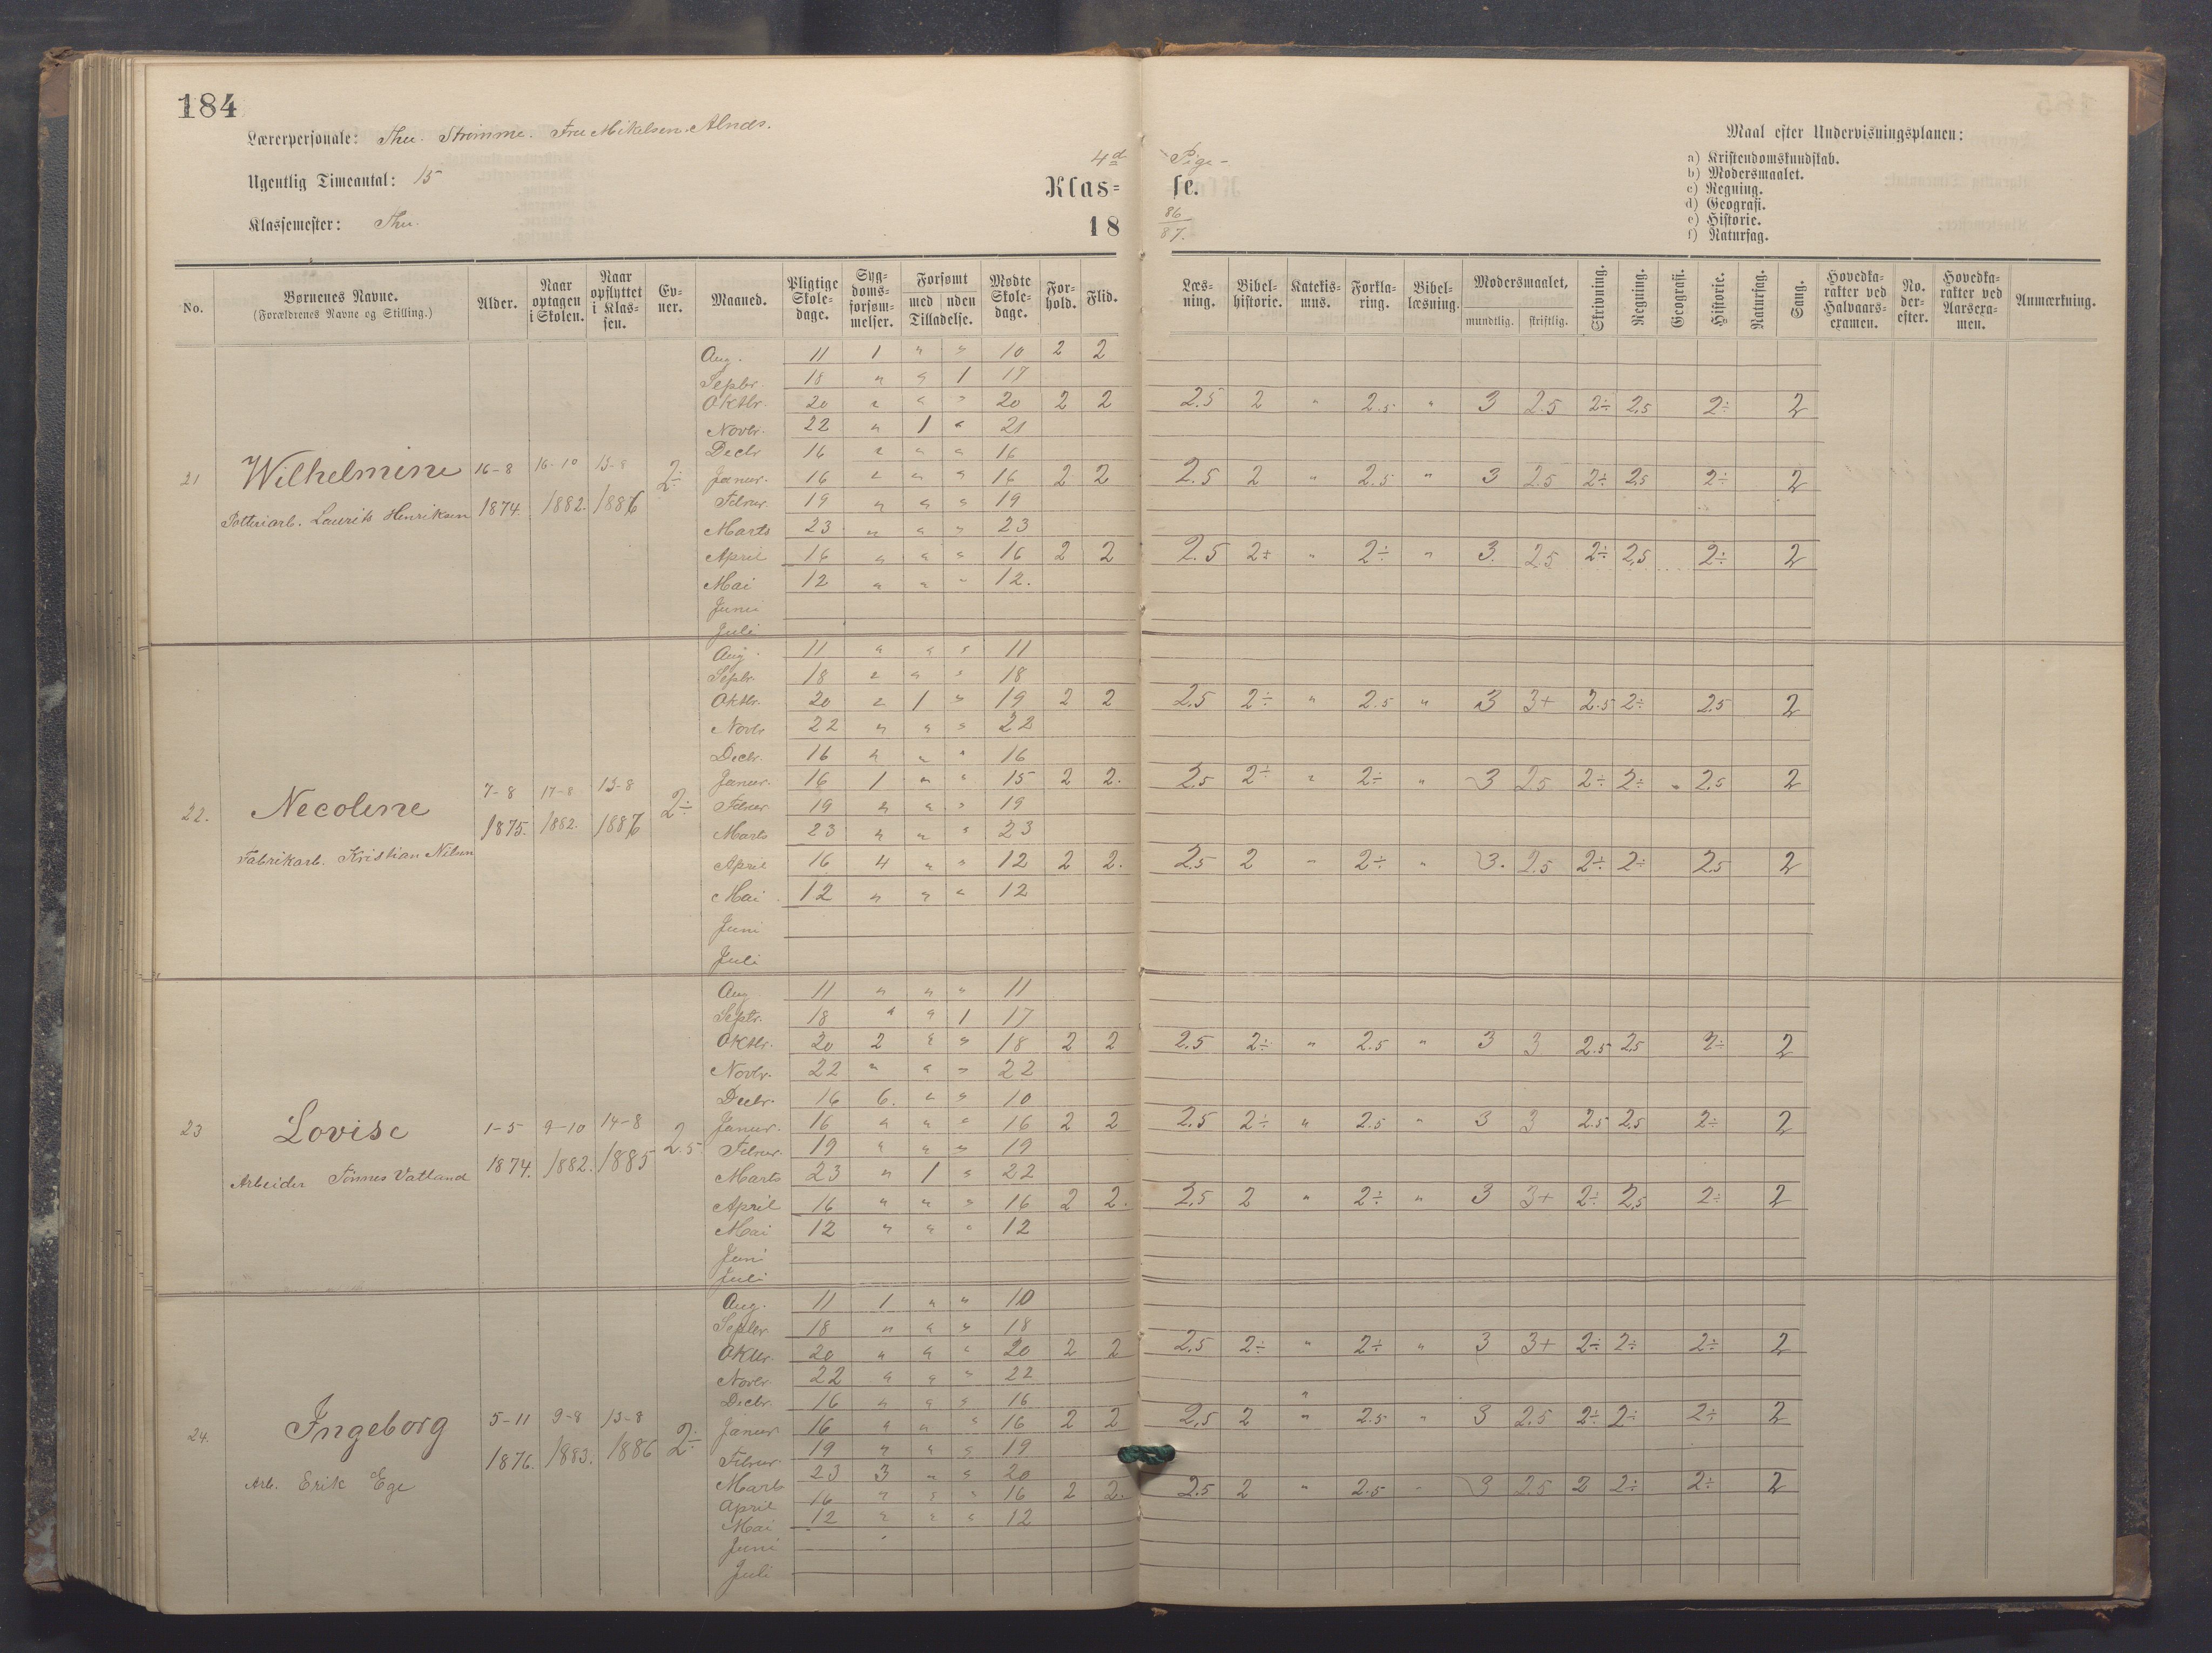 184
Lærerpersonale: Thu. Strømme. Fru Mikelsen. Alnæs.
Ugentlig Timeantal: 15
Klassemester: Thu.
4d Pige-
Klasse.
18 86/87.
Maal efter Undervisningsplanen:
a) Kristendomskundskab.
b) Modersmaalet.
c) Regning.
d) Geografi.
e) Historie.
f) Naturfag.
No. Børnenes Navne. (Forældrenes Navne og Stilling.) Alder. Naar optagen i Skolen. Naar opflyttet i Klassen. Evner. Maaned. Pligtige Skoledage. Sygdomsforsømmelser. Forsømt med uden Tilladelse. Mødte Skoledage. Forhold. Flid. Læsning. Bibelhistorie. Katekismus. Forklaring. Bibellæsning. Modersmaalet, mundtlig. skriftlig. Skrivning. Regning. Geografi. Historie. Naturfag. Sang. Hovedkarakter ved Halvaarsexamen. No. derefter. Hovedkarakter ved Aarsexamen. Anmærkning.
21 Wilhelmine 16-8 1874. 16-10 1882. 13-8 1886 2÷
Potteriarb. Laurits Henriksen
Aug. 11 1 " " 10 2 2
Sepbr. 18 " " 1 17
Oktbr. 20 " " " 20 2 2 2.5 2 " 2.5 " 3 2.5 2÷ 2.5 2÷ 2
Novbr. 22 " 1 " 21
Decbr 16 " " " 16
Janur. 16 " " " 16 2 2 2.5 2 " 2.5 " 3 2.5 2÷ 2.5 2÷ 2
Februr. 19 " " " 19
Marts 23 " " " 23
April 16 " " " 16 2 2 2.5 2+ " 2÷ " 3. 2.5 2÷ 2.5 2÷ 2
Mai 12 " " " 12.
Juni
Juli
22. Necoline 7-8 1875. 17-8 1882. 13-8 1886 2÷
Fabrikarb. Kristian Nilsen
Aug. 11 " " " 11
Sepbr. 18 " " " 18
Oktbr. 20 " 1 " 19 2 2 2.5 2÷ " 2.5 " 3 3+ 2.5 2÷ 2.5 2
Novbr 22 " " " 22
Decbr. 16 " " " 16
Janur. 16 1 " " 15 2 2. 2.5 2÷ " 2÷ " 3 2.5 2÷ 2÷ " 2.5 2
Februr. 19 " " " 19
Marts 23 " " " 23
April 16 4 " " 12 2 2. 2.5 2 " 2÷ " 3. 2.5 2÷ 2÷ 2.5 2
Mai 12 " " " 12
Juni
Juli
23 Lovise 1-5 1874. 9-10 1882. 14-8 1885 2.5.
Arbeider Tønnes Vatland
Aug 11 " " " 11
Septr. 18 " " 1 17
Oktbr. 20 2 " " 18 2 2 2.5 2÷ " 2.5 " 3 3 2.5 2.5 2÷ 2
Novbr. 22 " " " 22
Decbr. 16 6. " " 10
Janur. 16 " " " 16 2 2 2.5 2÷ " 2.5 " 3 3 2.5 2.5 2÷ 2
Februr. 19 " " " 19
Marts 23 " 1 " 22
April 16 " " " 16 2 2. 2.5 2 " 2÷ " 3 3+ 2÷ 2.5 2÷ 2
Mai 12 " " " 12
Juni
Juli
24. Ingeborg 5-11 1876. 9-8 1883. 13-8 1886 2÷
Arb. Erik Ege
Aug. 11 1 " " 10
Sepbr. 18 " " " 18
Oktbr. 20 " " " 20 2 2 2.5 2÷ " 2÷ " 3 3+ 2÷ 2÷ 2÷ 2
Novbr. 22 " " " 22
Decbr. 16 " " " 16 "
Janur 16 " " " 16 2 2 2.5 2 " 2.5 " 3 2.5 2÷ 2÷ 2÷ 2
Februr. 19 " " " 19
Marts 23 3 " " 20
April 16 " " " 16 2 2. 2.5 2 " 2.5 " 3 2.5 2 2÷ 2÷ 2
Mai 12 " " " 12
Juni
Juli